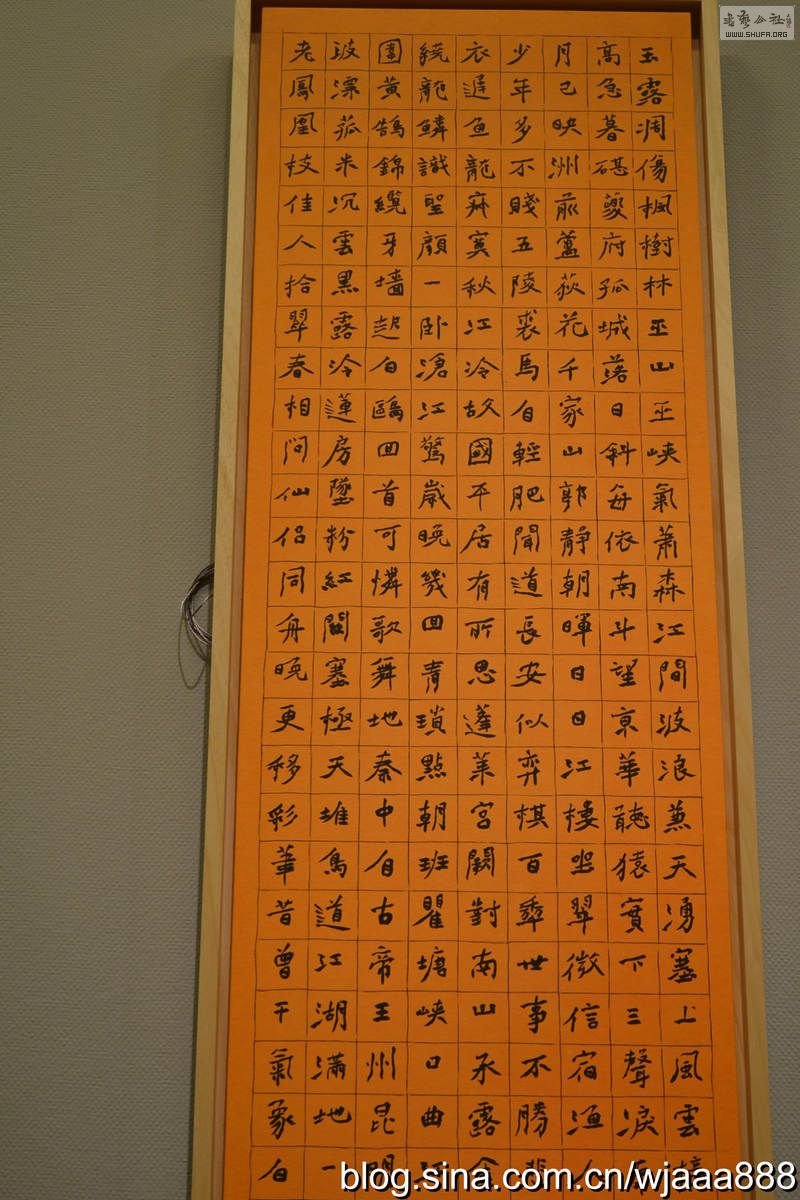 玉露凋傷楓樹林巫山巫峽氣蕭森江間波浪兼天湧塞上風雲
高急暮碪夔府孤城落日斜每依南斗望京華聽猿實下三聲淚
月已映洲前蘆荻花千家山郭靜朝暉日日江樓坐翠微信宿漁人
少年多不賤五陵裘馬自輕肥聞道長安似弈棋百年世事不勝悲
衣遲魚龍寂寞秋江冷故國平居有所思蓬萊宮闕對南山承露金
繞龍鱗識聖顏一卧滄江驚歲晚幾回青瑣點朝班瞿塘峽口曲江
圍黃鵠錦纜牙墻起白鷗回首可憐歌舞地秦中自古帝王州昆明
波漂菰米沉雲黑露冷蓮房墜粉紅關塞極天唯鳥道江湖滿地一
老鳳凰枝佳人拾翠春相問仙侶同舟晚更移彩筆昔曾干氣象白
書藝公社
WWW.SHUFA.ORG
blog.sina.com.cn/wjaaa888